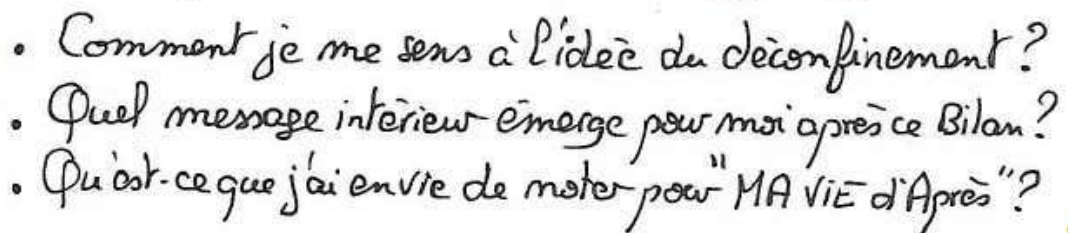 • Comment je me sens à l'idée du déconfinement?
• Quel message intérieur émerge pour moi après ce Bilan?
• Qu'est-ce que j'ai envie de noter pour "MA ViE d'Après"?